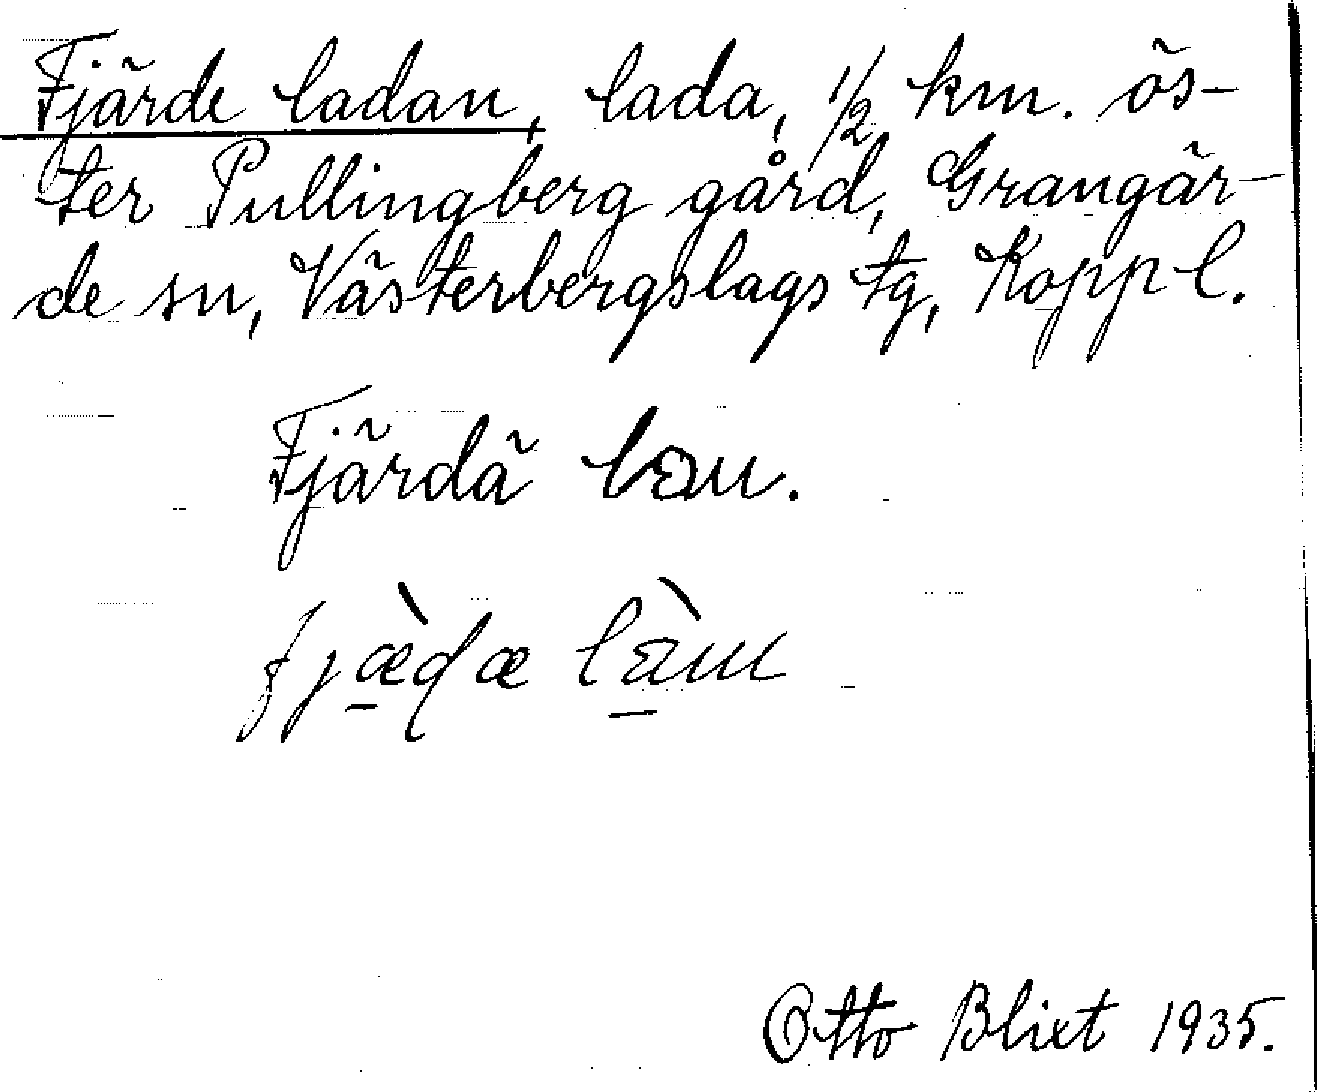 Fjärde ladan, lada, 1/2 km. ös-
ter Pullingberg gård, Grangär-
de sn, Västerbergslags tg, Kopp l.
Fjärdä
Otto Blixt 1935.